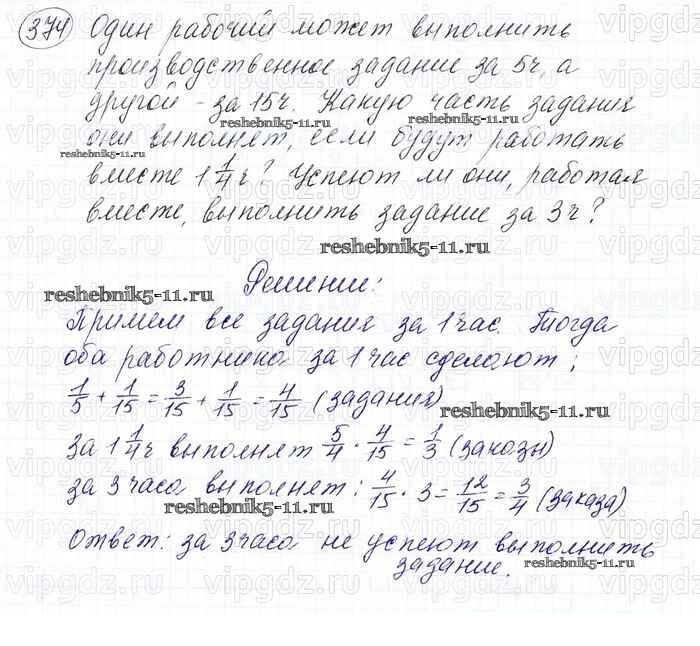 374 Один рабочий может выполнить
производственное задание за 5ч, а
другой - за 15ч. Какую часть задания
они выполнят, если будут работать
reshebnik5-11.ru
reshebnik5-11.ru
вместе 1 1/4 ч? Успеют ли они, работая
вместе, выполнить задание за 3ч?
reshebnik5-11.ru
Решение:
reshebnik5-11.ru
Примем все задания за 1 час. Тогда
оба работника за 1 час сделают;
1/5 + 1/15 = 3/15 + 1/15 = 4/15 (задания)
reshebnik5-11.ru
За 1 1/4 ч выполнят 5/4 · 4/15 = 1/3 (заказы)
за 3 часа выполнят: 4/15 · 3 = 12/15 = 3/4 (заказа)
reshebnik5-11.ru
Ответ: за 3 часа не успеют выполнить
задание.
reshebnik5-11.ru
vipgdz.ru